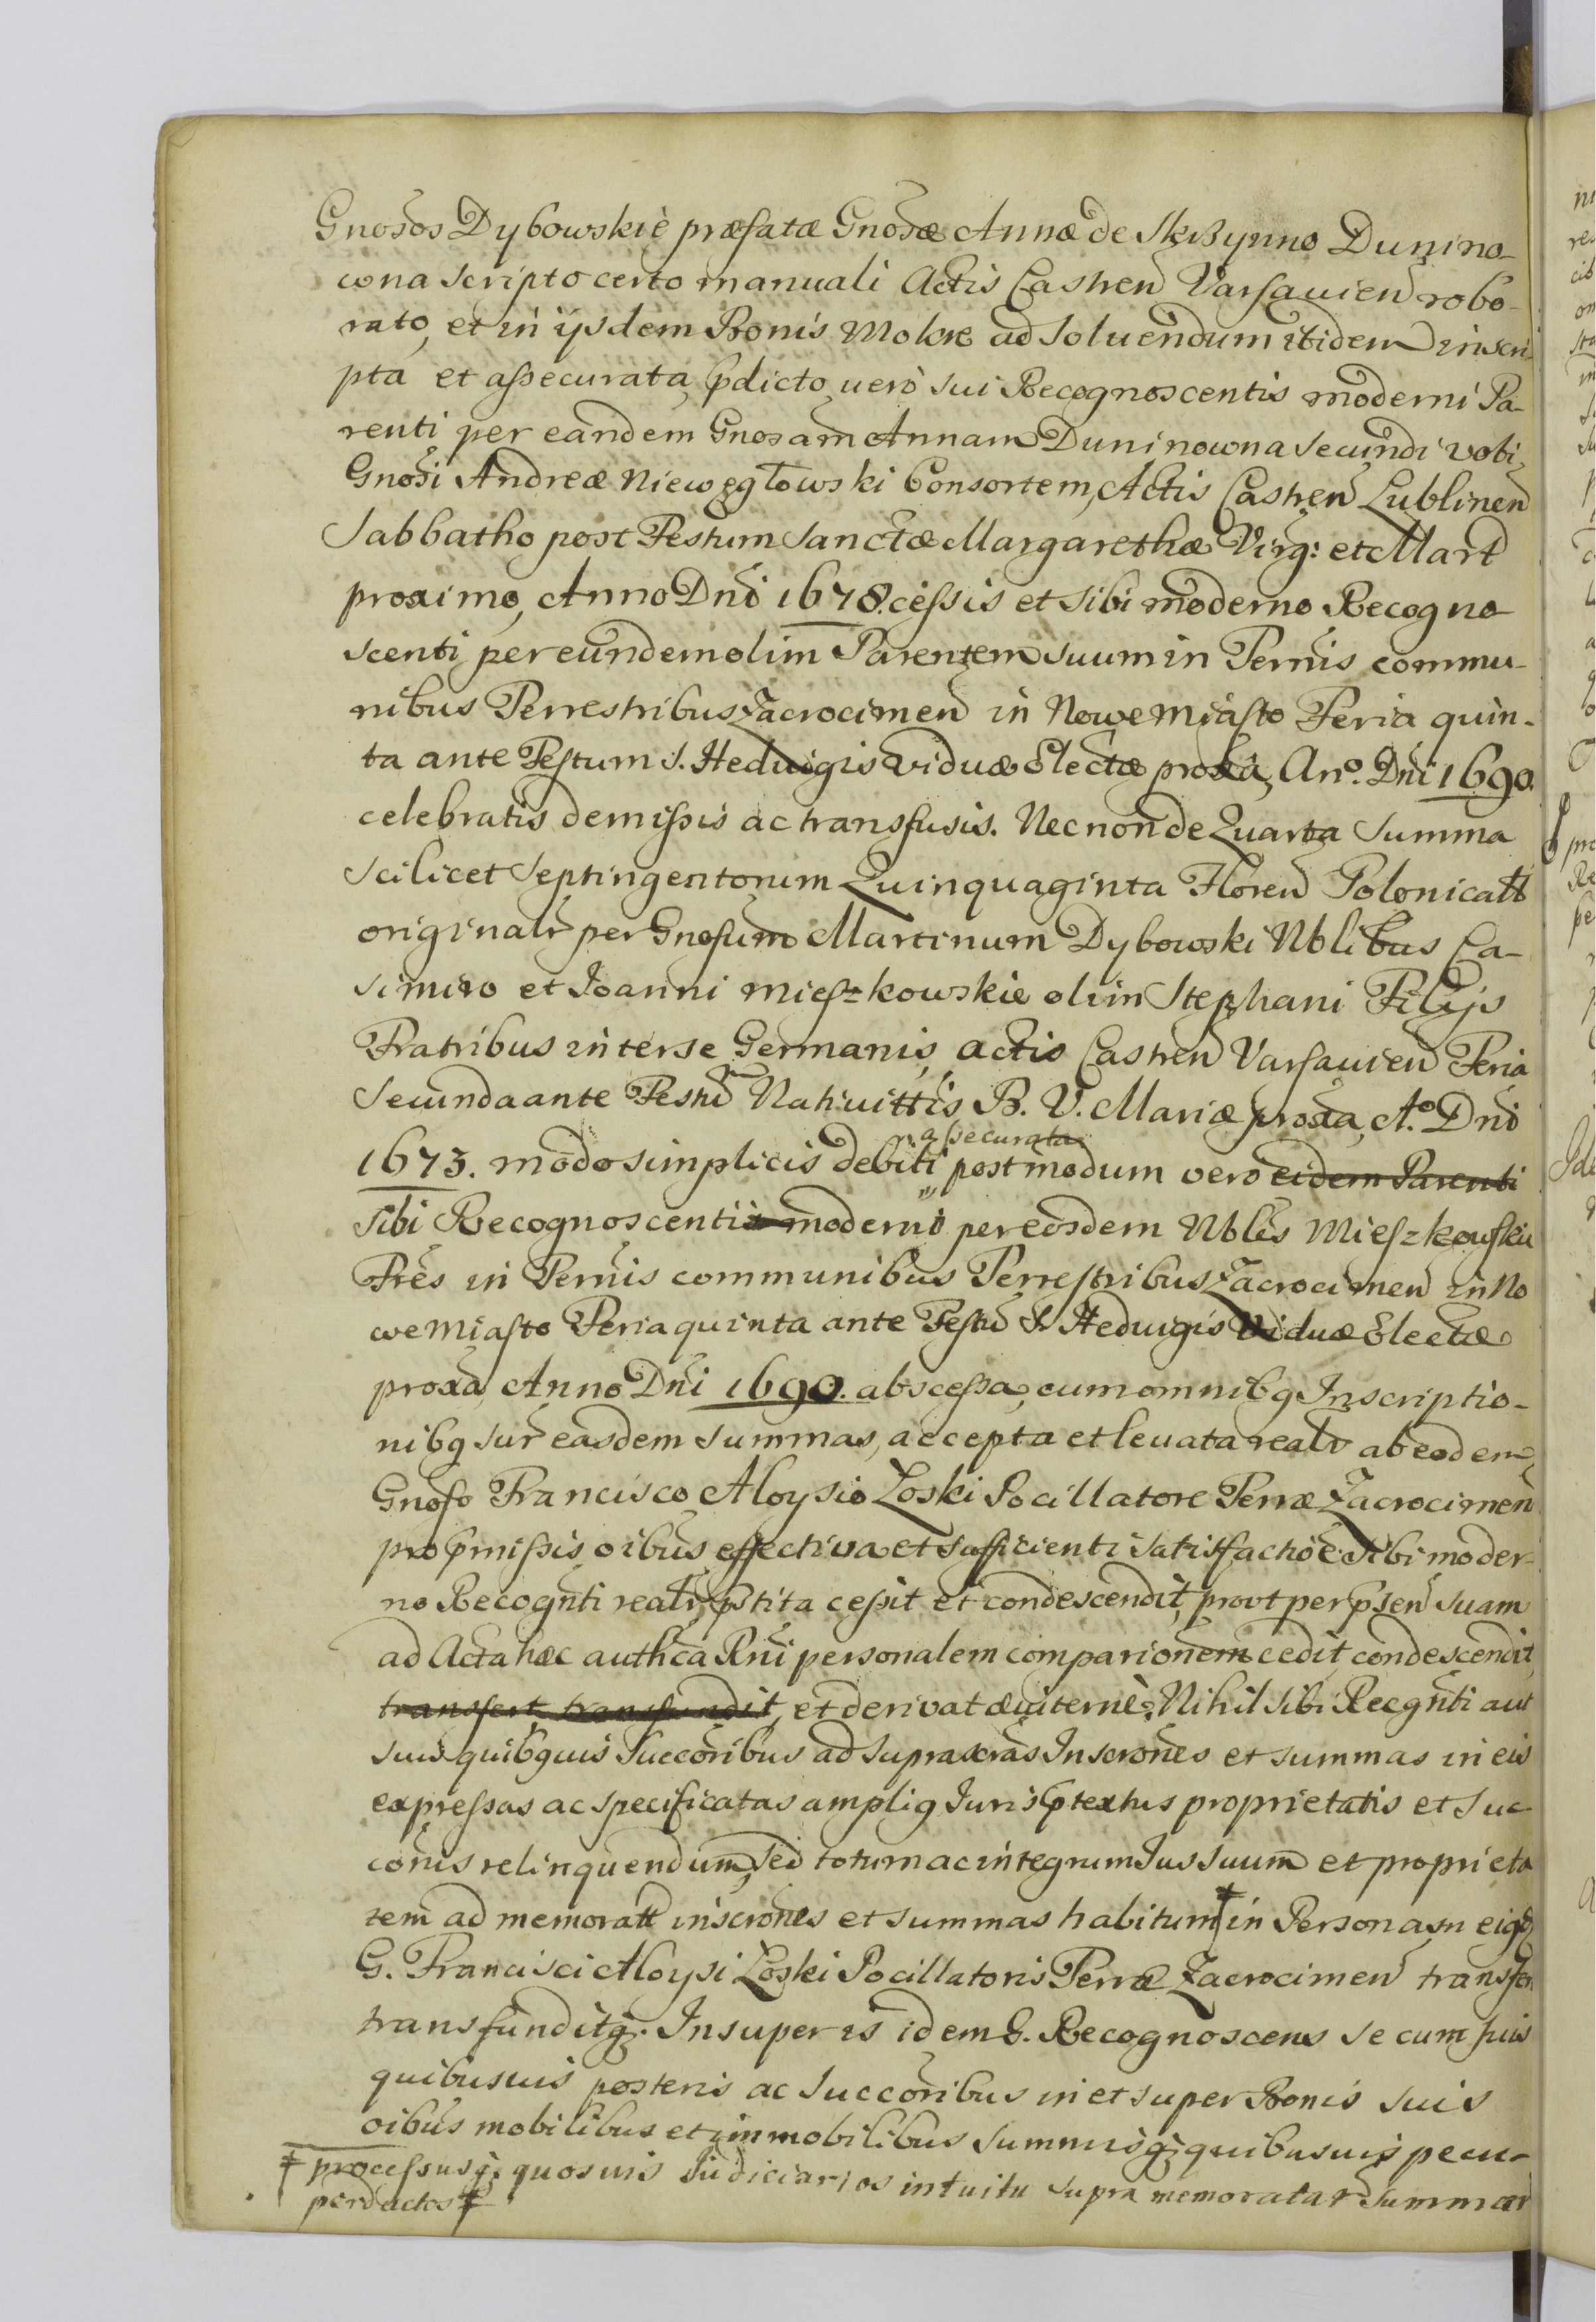 Gnosos Dybowskie præfatæ Gnosæ Annæ de Skrzynno Dunino-
wna scripto certo manuali Actis Castren Varsavien robo-
rato, et in ijsdem Bonis Mokre ad soluendum itidem inscri
pta et assecurata, pdicto uero sui Recognoscentis moderni Pa-
renti per eandem Gnosam Annam Duninowna secundi voti,
Gnosi Andreæ Niewęgłowski Consortem, Actis Castren Lublinen
Sabbatho post Festum Sanctæ Margarethæ Virg: et Mart
proximo, Anno Dni 1678. cessis et sibi moderno Recogno
scenti per eundem olim Parentem suum in Termis commu-
nibus Terrestribus Zacrocimen in Nowe Miasto Feria quin-
ta ante Festum S. Hedwigis Viduæ Electæ proxa, Ano. Dni 1690.
celebratis demissis ac transfusis. Necnon de Quarta Summa
scilicet Septingentorum Quinquaginta Floren Polonicatt
originalr per Gnosum Martinum Dybowski Nblibus Ca-
simiro et Joanni Mieszkowskie olim Stephani Filijs
Fratribus inter se Germanis, actis Castren Varsavien Feria
Secunda ante Festu Nativittis B. V. Mariæ proxa, Ao. Dni
assecurata
1673. modo simplicis debiti postmodum vero eidem Parenti
sibi Recognoscenti moderno per eosdem Nbles Mieszkowskie
Fres in Termis communibus Terrestribus Zacrocimen in No
we Miasto Feria quinta ante Festu S. Hedwigis Viduæ Electæ
proxa, Anno Dni 1690. abscessa, cum omnibq Inscriptio-
nibq sur easdem summas, accepta et levata realr ab eodem
Gnoso Francisco Aloysio Łoski Pocillatore Terræ Zacrocimen
pro pmissis oibus effectiva et sufficienti satisfactioe sibi moder-
no Recognti realr pstita cessit et condescendit, prout per psen suam
ad Acta hæc authca Rni personalem comparionem cedit, condescendit,
transfert transfundit, et derivat æuiterne. Nihil sibi Recgnti aut
suis quibquis Succoribus ad supra scras Inscrones et summas in eis
expressas ac specificatas ampliq Juris ptextus proprietatis et suc
conis relinquendum, sed totum ac integrum Jus suum et proprieta
tem ad memoratt inscrones et summas habitum ‡ in Personam eiqd
G. Francisci Aloysi Łoski Pocillatoris Terræ Zacrocimen transfer
transfunditq. Insuper is idem G. Recognoscens se cum suis
quibusuis posteris ac succoribus in et super Bonis suis
oibus mobilibus et immobilibus summisq; quibusuis pecu-
‡ processusq; quosuis Judiciarios intuitu supra memoratar Summar
perductos ‡